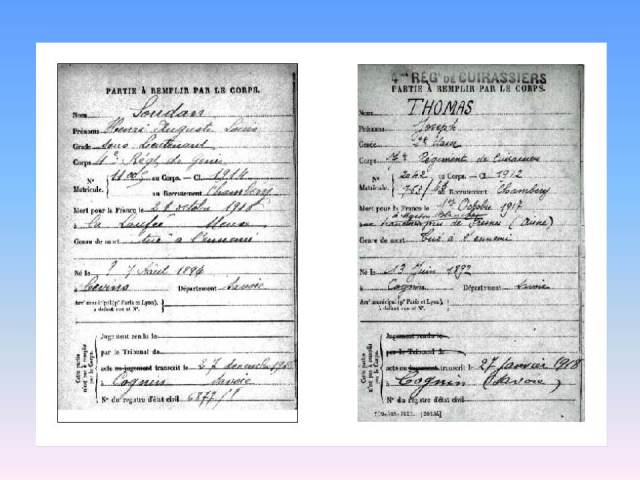 PARTIE À REMPLIR PAR LE CORPS.
Nom Soudan
Prénoms Henri Auguste Louis
Grade Sous Lieutenant
Corps 4e Régt de Génie
N° au Corps. — Cl. 1914
Matricule. au Recrutement Chambéry
Mort pour la France le octobre 1918
à Meuse
Genre de mort tué à l'ennemi
Né le 7 Août 1894
à Cevins Département Savoie
Arrt municipal (pr Paris et Lyon),
à défaut rue et N°.
Cette partie n'est pas à remplir par le Corps.
Jugement rendu le
par le Tribunal de
acte ou jugement transcrit le 27
à Cognin Savoie
N° du registre d'état civil
4me RÉGt DE CUIRASSIERS
PARTIE À REMPLIR PAR LE CORPS.
Nom THOMAS
Prénoms Joseph
Grade
Corps Régiment de Cuirassiers
N° 2042 au Corps. — Cl. 1912
Matricule. au Recrutement Chambéry
Mort pour la France le 1er Octobre 1917
(Aisne)
Genre de mort Tué à l'ennemi
Né le 13 Juin 1892
à Cognin Département Savoie
Arrt municipal (pr Paris et Lyon),
à défaut rue et N°.
Cette partie n'est pas à remplir par le Corps.
Jugement rendu le
par le Tribunal de
acte ou jugement transcrit le 27 Janvier 1918
à Cognin (Savoie)
N° du registre d'état civil